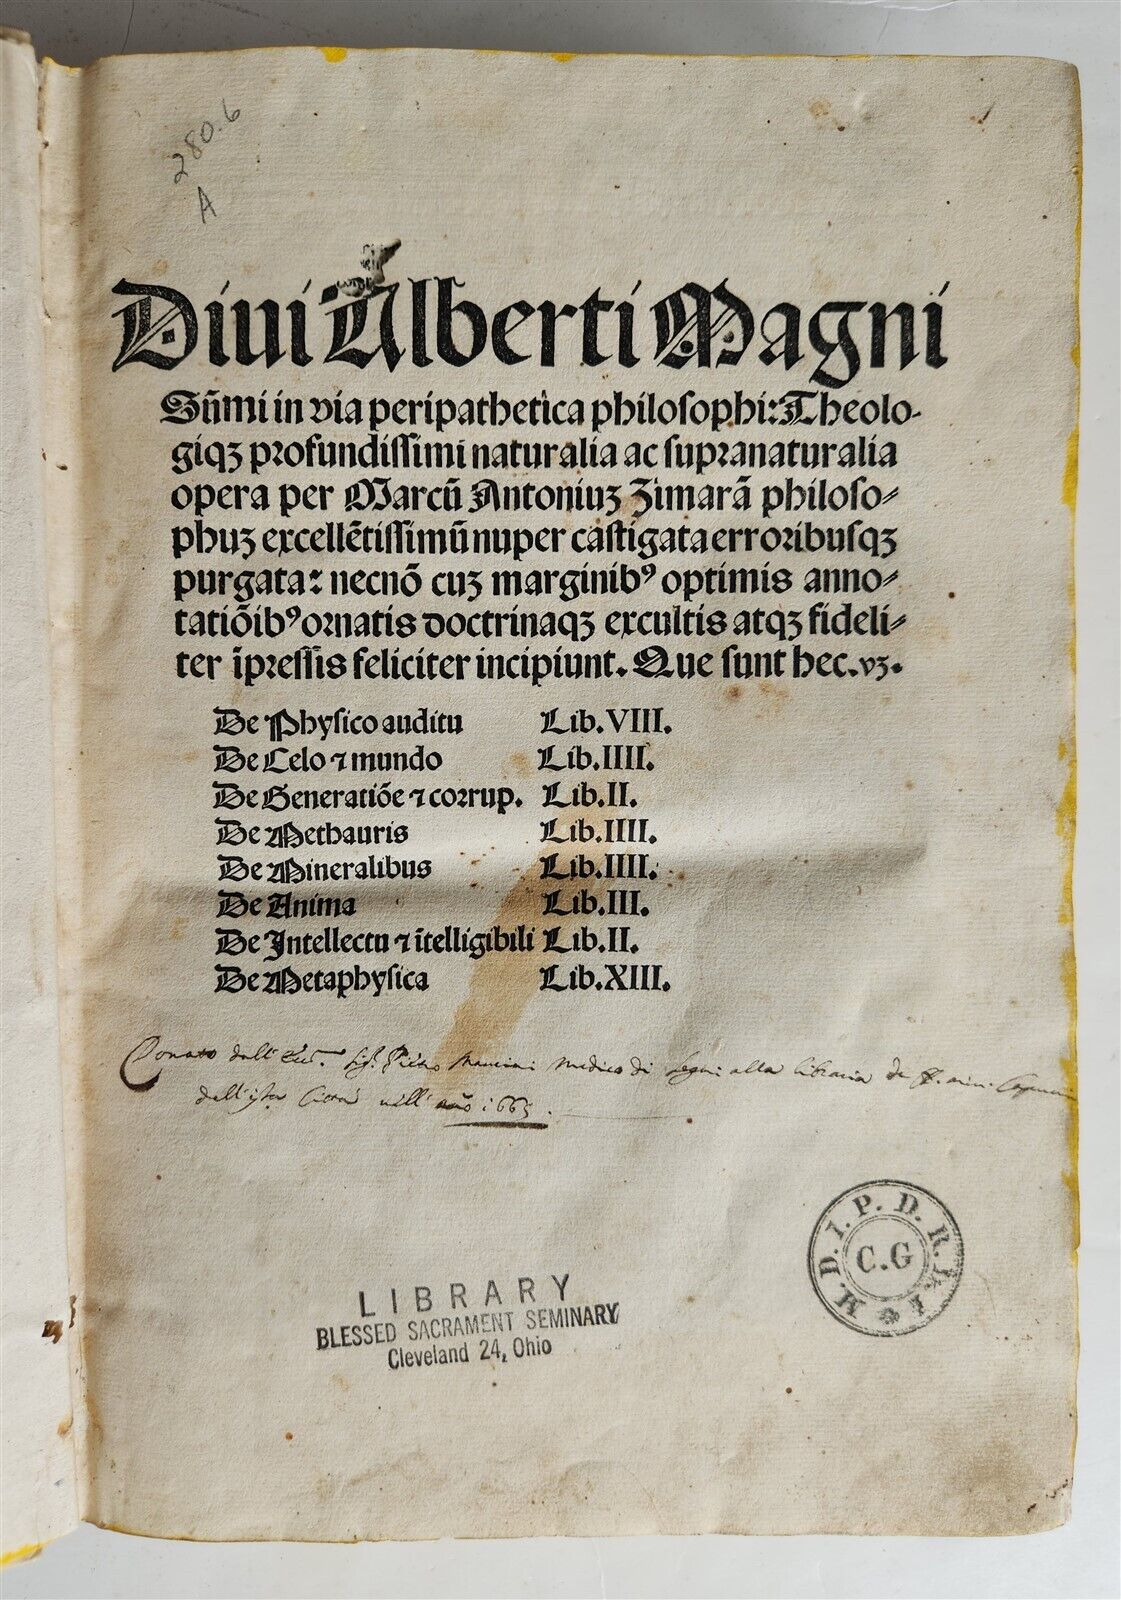 280.6
A
Diui Alberti Magni
Sūmi in via peripathetica philosophi: Theolo-
giqȝ profundissimi naturalia ac supranaturalia
opera per Marcū Antoniuȝ Zimarā philoso-
phuȝ excellētissimū nuper castigata erroribusqȝ
purgata: necnō cuȝ marginibꝰ optimis anno-
tatiōibꝰ ornatis doctrinaqȝ excultis atqȝ fideli-
ter īpressis feliciter incipiunt. Que sunt hec.vȝ.
De Physico auditu Lib.VIII.
De Celo ⁊ mundo Lib.IIII.
De Generatiōe ⁊ corrup. Lib.II.
De Methauris Lib.IIII.
De Mineralibus Lib.IIII.
De Anima Lib.III.
De Intellectu ⁊ ītelligibili Lib.II.
De Metaphysica Lib.XIII.
Donato dall' Ecc. Sigr. Pietro Mancini Medico di Segni alla libraria de
dell' Città nell' año 1665.
M. D. I. P. D. R.
C.G
LIBRARY
BLESSED SACRAMENT SEMINARY
Cleveland 24, Ohio